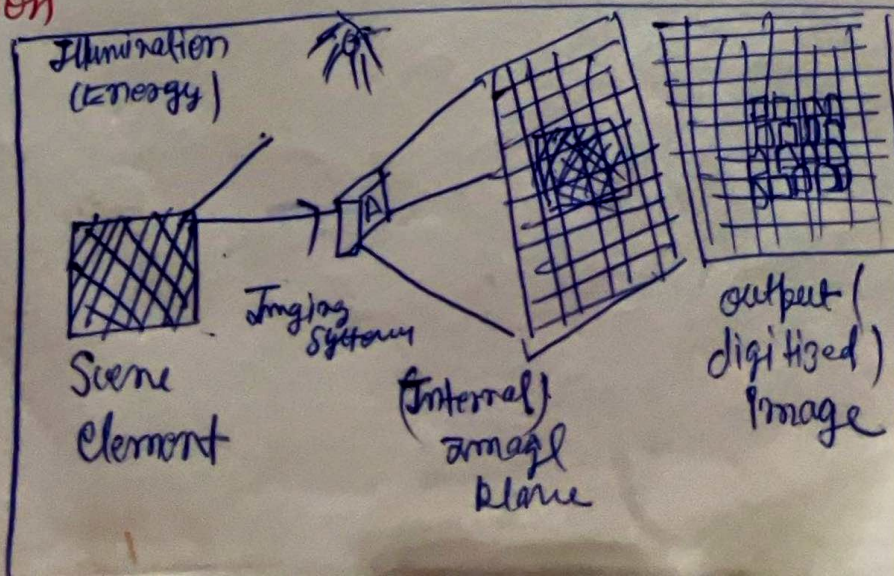 on
Illumination
(Energy)
A
Imging
System
Scene
Elemont
(Internal)
amage
plane
output (
digitized)
Image